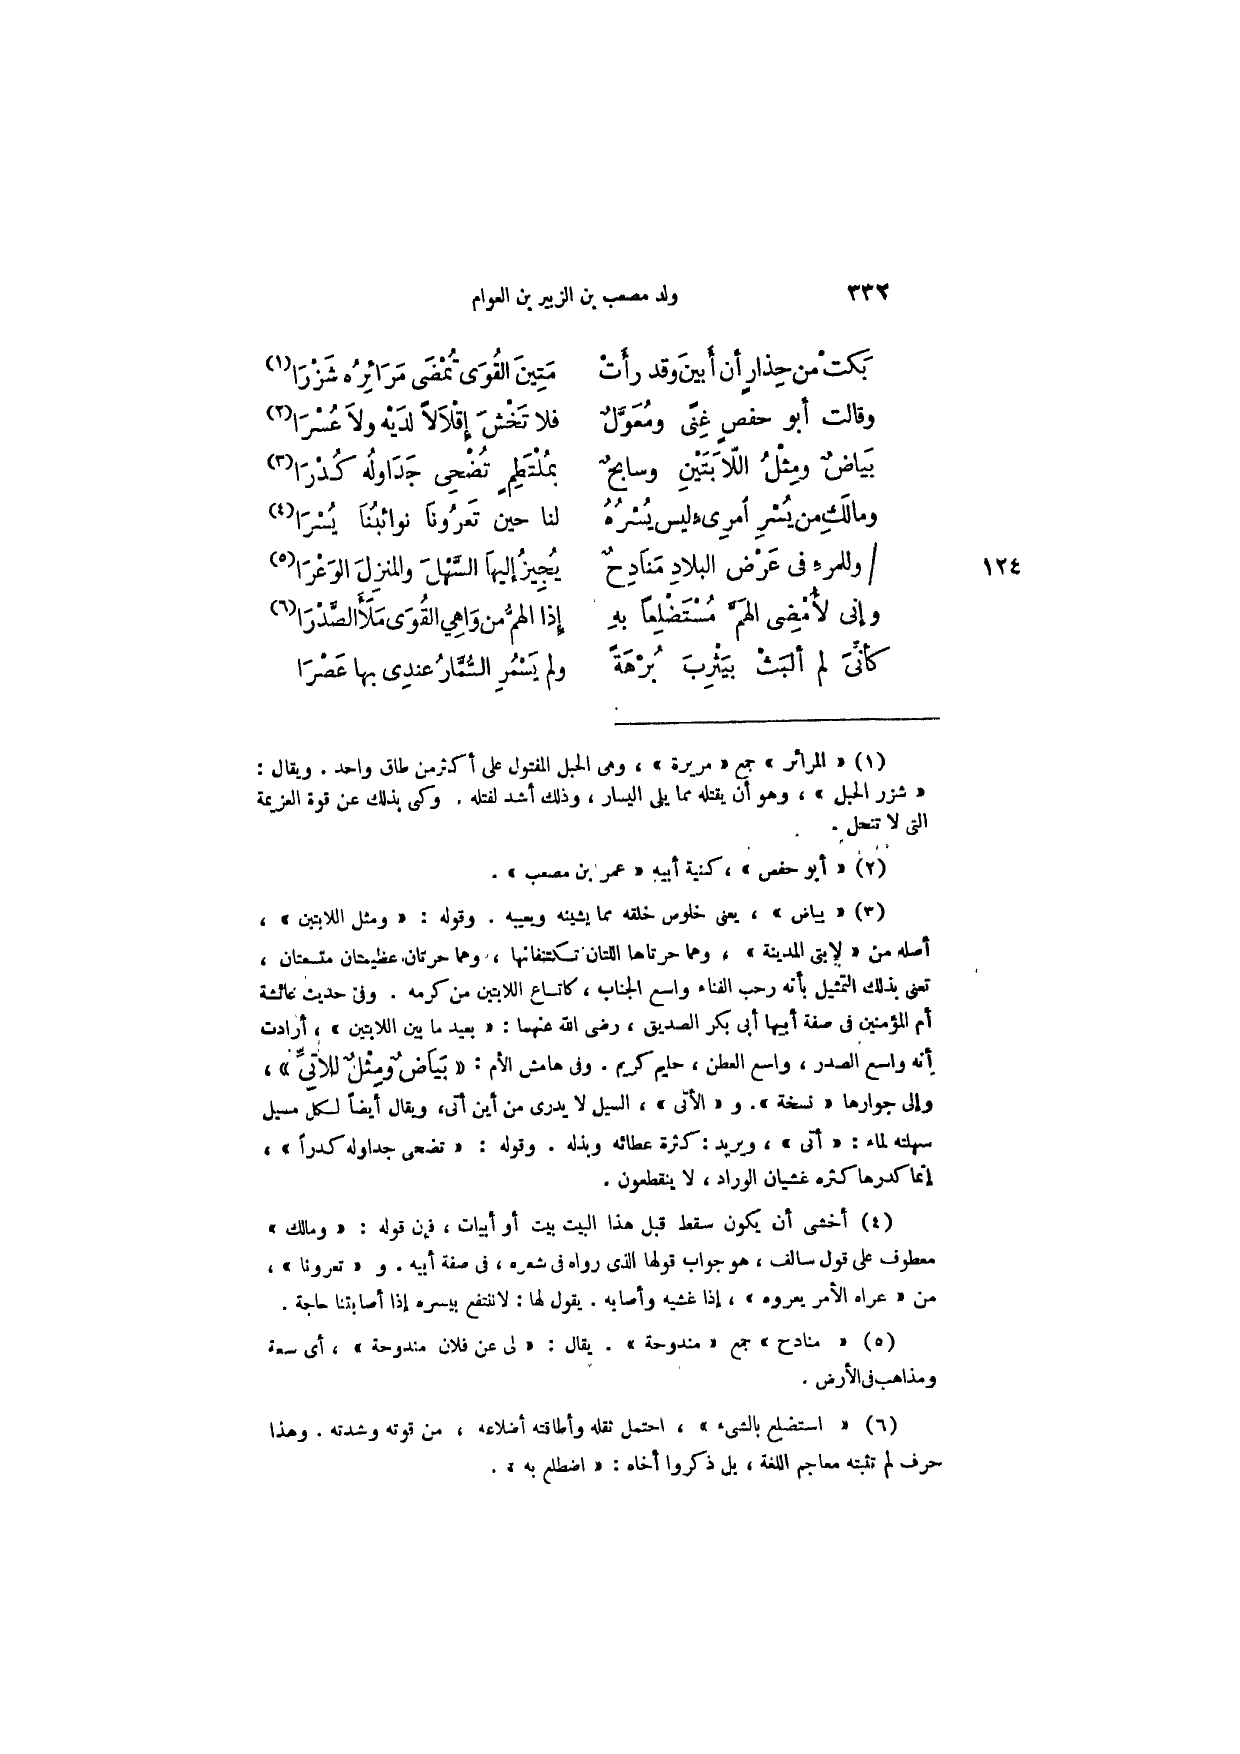 ٣٣٢ ولد مصعب بن الزبير بن العوام
بَكتْ من حِذارٍ أن أَبينَ وقد رأَتْ مَتِينَ القُوَى تُمْضَى مَرَائِرُه شَزْرَا(١)
وقالت أبو حفصٍ غِنًى ومُعَوَّلٌ فلا تَخْشَ إِقْلاَلاً لدَيْه ولاَ عُسْرَا(٢)
بَيَاضٌ ومِثْلُ اللاَّبَتَيْنِ وسابحٌ بمُلْتَطِمٍ تُضْحِى جَدَاولُه كُدْرَا(٣)
ومالَكِ من يُسْرِ أمرىءٍ ليس يُسْرُهُ لنا حين تَعرُونَا نوائبُنَا يُسْرَا(٤)
١٢٤ / وللمرءِ فى عَرْض البلادِ مَنَادِحٌ يُجِيزُ إليهاَ السَّهْلَ والمنزِلَ الوَعْرَا(٥)
وإنى لأُمْضِى الهمَّ مُسْتَضْلِعاً بهِ إذا الهمُّ من وَاهِي القُوَى مَلَأَ الصَّدْرَا(٦)
كأنِّىَ لم ألبَثْ بيَثْرِبَ بُرْهَةً ولم يَسْمُرِ السُّمَّارُ عندِى بها عَصْرَا
(١) « المرائر » جمع « مريرة » ، وهى الحبل المفتول على أكثر من طاق واحد . ويقال :
« شزر الحبل » ، وهو أن يفتله مما يلى اليسار ، وذلك أشد لفتله . وكى بذلك عن قوة العزيمة
التى لا تنحل .
(٢) « أبو حفص » ، كنية أبيه « عمر بن مصعب » .
(٣) « بياض » ، يعنى خلوص خلقه مما يشينه ويعيبه . وقوله : « ومثل اللابتين » ،
أصله من « لابتى المدينة » ، وهما حرتاها اللتان تكتنفانها ، وهما حرتان عظيمتان متسعتان ،
تعنى بذلك التمثيل بأنه رحب الفناء واسع الجناب ، كاتساع اللابتين من كرمه . وفى حديث عائشة
أم المؤمنين فى صفة أبيها أبى بكر الصديق ، رضى الله عنهما : « بعيد ما بين اللابتين » ، أرادت
أنه واسع الصدر ، واسع العطن ، حليم كريم . وفى هامش الأم : « بَيَاضٌ ومِثْلٌ للأتىِّ » ،
وإلى جوارها « نسخة » . و « الأتى » ، السيل لا يدرى من أين أتى، ويقال أيضاً لكل مسيل
سهلته لماء : « أتى » ، ويريد : كثرة عطائه وبذله . وقوله : « تضحى جداوله كدراً » ،
إنما كدرها كثره غشيان الوراد ، لا ينقطعون .
(٤) أخشى أن يكون سقط قبل هذا البيت بيت أو أبيات ، فإن قوله : « ومالك »
معطوف على قول سالف ، هو جواب قولها الذى رواه فى شعره ، فى صفة أبيه . و « تعرونا » ،
من « عراه الأمر يعروه » ، إذا غشيه وأصابه . يقول لها : لا ننتفع بيسره إذا أصابتنا حاجة .
(٥) « منادح » جمع « مندوحة » . يقال : « لى عن فلان مندوحة » ، أى سعة
ومذاهب فى الأرض .
(٦) « استضلع بالشىء » ، احتمل ثقله وأطاقته أضلاعه ، من قوته وشدته . وهذا
حرف لم تثبته معاجم اللغة ، بل ذكروا أخاه : « اضطلع به » .